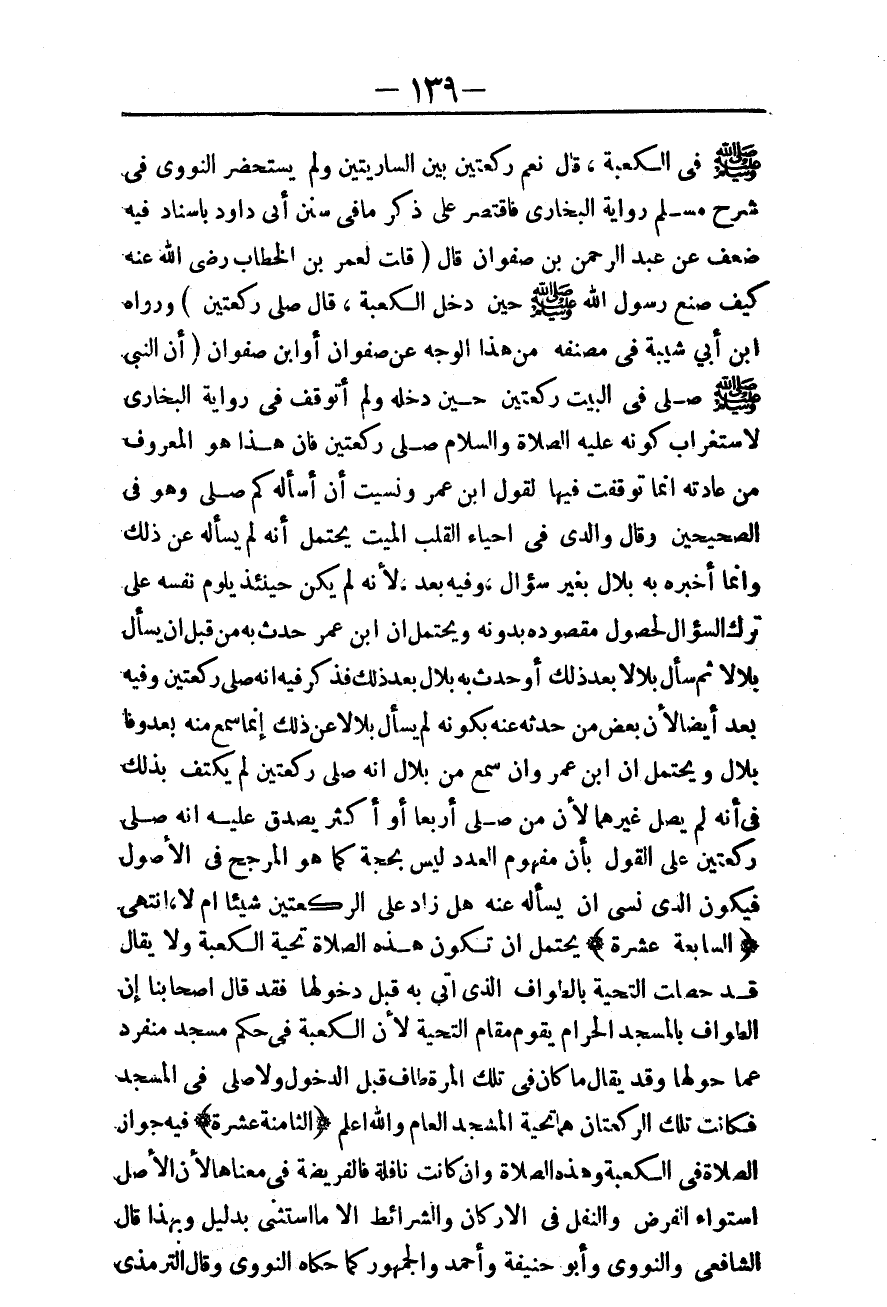 – ١٣٩ –
ﷺ فى الكعبة ، قال نعم ركعتين بين الساريتين ولم يستحضر النووى فى
شرح مسلم رواية البخارى فاقتصر على ذكر مافى سنن أبى داود باسناد فيه
ضعف عن عبد الرحمن بن صفوان قال ( قات لعمر بن الخطاب رضى الله عنه
كيف صنع رسول الله ﷺ حين دخل الكعبة ، قال صلى ركعتين ) ورواه
ابن أبي شيبة فى مصنفه من هذا الوجه عن صفوان أوابن صفوان ( أن النبى
ﷺ صلى فى البيت ركعتين حين دخله ولم أتوقف فى رواية البخارى
لاستغراب كونه عليه الصلاة والسلام صلى ركعتين فان هذا هو المعروف
من عادته انما توقفت فيها لقول ابن عمر ونسيت أن أسأله كم صلى وهو فى
الصحيحين وقال والدى فى احياء القلب الميت يحتمل أنه لم يسأله عن ذلك
وانما أخبره به بلال بغير سؤال ،وفيه بعد ،لأنه لم يكن حينئذ يلوم نفسه على
ترك السؤال لحصول مقصوده بدونه ويحتمل ان ابن عمر حدث به من قبل ان يسأل
بلالا ثم سأل بلالا بعد ذلك أوحدث به بلال بعد ذلك فذكر فيه انه صلى ركعتين وفيه
بعد أيضا لأن بعض من حدثه عنه بكونه لم يسأل بلالا عن ذلك إنما سمع منه بعدوفا
بلال ويحتمل ان ابن عمر وان سمع من بلال انه صلى ركعتين لم يكتف بذلك
فى أنه لم يصل غيرهما لأن من صلى أربعا أو أكثر يصدق عليه انه صلى
ركعتين على القول بأن مفهوم العدد ليس بحجة كما هو المرجح فى الأصول
فيكون الذى نسى ان يسأله عنه هل زاد على الركعتين شيئا ام لا،انتهى
﴿ السابعة عشرة ﴾ يحتمل ان تكون هذه الصلاة تحية الكعبة ولا يقال
قد حصات التحية بالطواف الذى اتى به قبل دخولها فقد قال اصحابنا إن
الطواف بالمسجد الحرام يقوم مقام التحية لأن الكعبة فى حكم مسجد منفرد
عما حولها وقد يقال ما كان فى تلك المرة طاف قبل الدخول ولاصلى فى المسجد
فكانت تلك الركعتان هما تحية المشجد العام والله اعلم ﴿الثامنة عشرة﴾ فيه جواز
الصلاة فى الكعبة وهذه الصلاة وان كانت نافلة فالفريضة فى معناها لأن الأصل
استواء الفرض والنفل فى الاركان والشرائط الا مااستثنى بدليل وبهذا قال
الشافعى والنووى وأبو حنيفة وأحمد والجمهور كما حكاه النووى وقال الترمذى